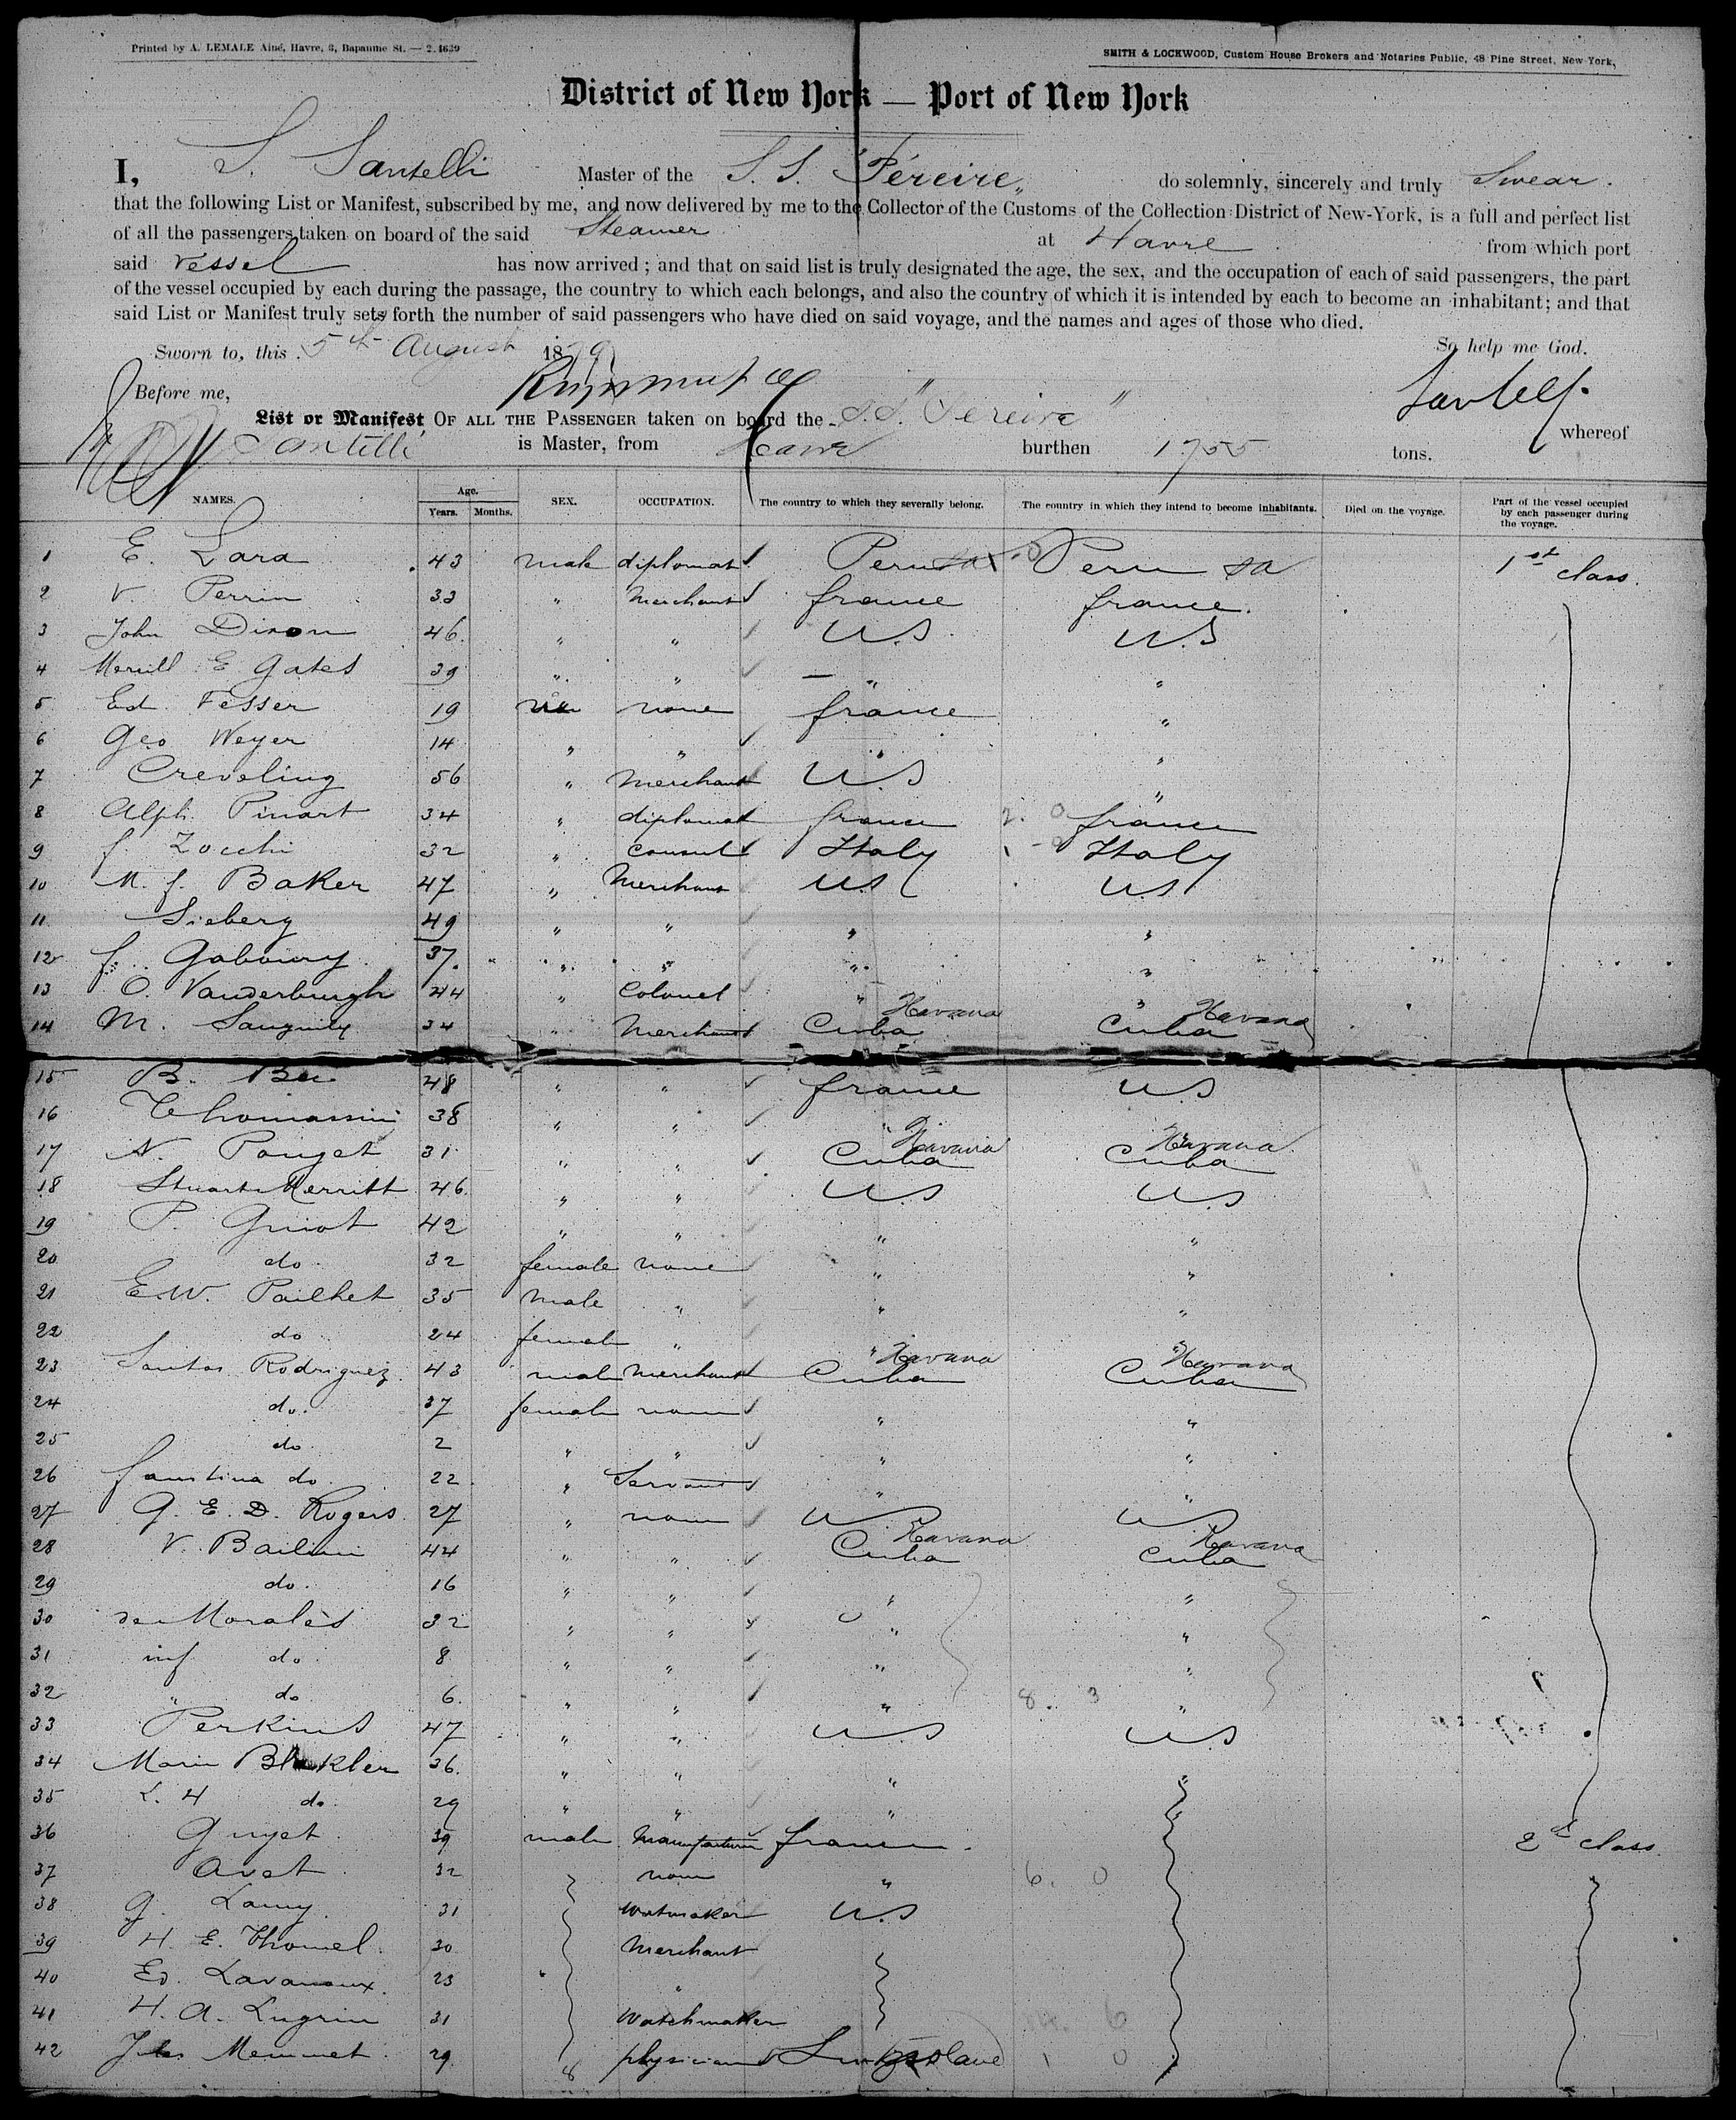 Printed by A. LEMALE Ainé, Havre, 3, Bapaume St. — 2.4639
SMITH & LOCKWOOD, Custom House Brokers and Notaries Public, 48 Pine Street, New York,
District of New York — Port of New York
I, S. Santelli Master of the S. S. "Péreire" do solemnly, sincerely and truly Swear.
that the following List or Manifest, subscribed by me, and now delivered by me to the Collector of the Customs of the Collection District of New-York, is a full and perfect list
of all the passengers taken on board of the said Steamer at Havre from which port
said Vessel has now arrived ; and that on said list is truly designated the age, the sex, and the occupation of each of said passengers, the part
of the vessel occupied by each during the passage, the country to which each belongs, and also the country of which it is intended by each to become an inhabitant; and that
said List or Manifest truly sets forth the number of said passengers who have died on said voyage, and the names and ages of those who died.
Sworn to, this 5th August 1879 So help me God.
Before me, Santelli
List or Manifest, OF ALL THE PASSENGER taken on board the S.S. "Pereire" whereof
Santelli is Master, from Havre burthen 1755 tons.
NAMES. Age. Years. Months. SEX. OCCUPATION. The country to which they severally belong. The country in which they intend to become inhabitants. Died on the voyage. Part of the vessel occupied by each passenger during the voyage.
1 E. Lara 43 male diplomat Peru SA Peru SA 1st class.
2 V. Perrin 33 " Merchant france france.
3 John Dixon 46. " " U.S. U.S
4 Merrill E Gates 39 " " " "
5 Ed. Fesser 19 none france "
6 Geo Weyer 14 " " " "
7 Creveling 56 " Merchant U.S "
8 Alph. Pinart 34 " diplomat france france
9 f Zocchi 32 " Consul Italy Italy
10 M. f. Baker 47 " Merchant US U.S
11 Sieberg 49 " " " "
12 f. Gaboury 37. " " " "
13 O. Vanderburgh 44 " Colonel " "
14 M. Sanguily 34 " Merchant Cuba Havana Cuba Havana
15 B. 48 " " france U.S
16 Thomassin 38 " " "
17 N. Pouget 31 " " Cuba Havana Cuba Havana
18 Stuart Merritt 46. " " U.S U.S
19 P. Guiot 42 " " " "
20 do. 32 female none " "
21 E.W. Pailhet 35 Male " " "
22 do 24 female " " "
23 Santos Rodriguez 43 male Merchant Cuba Havana Cuba Havana
24 do. 37 female none " "
25 do 2 " " " "
26 faustina do 22 " Servant " "
27 G. E. D. Rogers 27 " none US US
28 V. 44 " " Cuba Havana Cuba Havana
29 do. 16 " " " "
30 de Moralès 32 " " " "
31 inf do. 8 " " " "
32 " do 6. " " " " 8. 3
33 Perkins 47 " " U.S U.S
34 Marie 36. " " " "
35 L. H do. 29 " " "
36 Guyet 39 male Manufacturer france 2d class.
37 Avet 32 none " 6. 0
38 G. Lamy 31 Watmaker U.S
39 H. E. Thomel 30 Merchant
40 Ed. 23 "
41 H. A. Lugrin 31 Watchmaker
42 Jules Memmet 29 physician 1 0